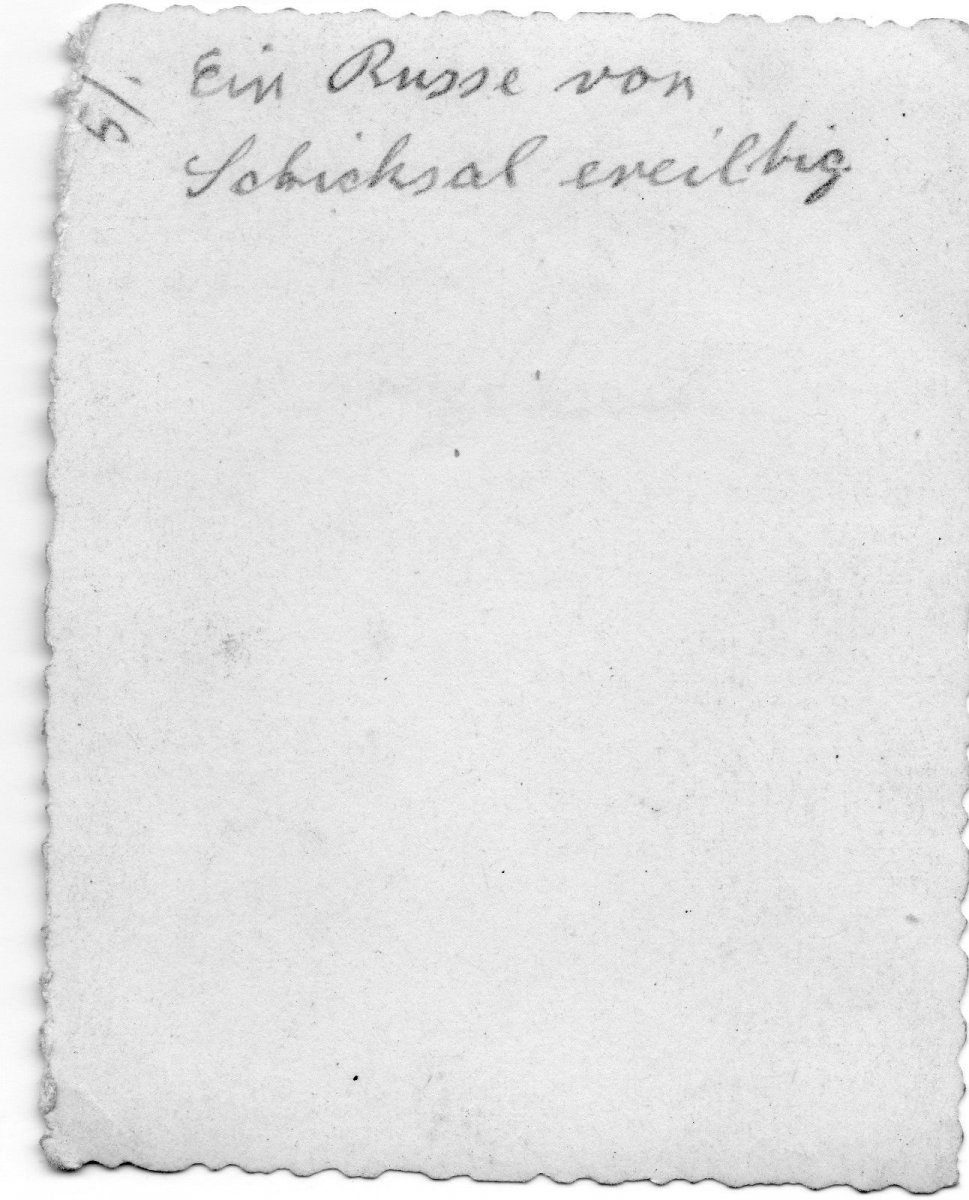 51.
Ein Russe von
Schicksal ereiltig